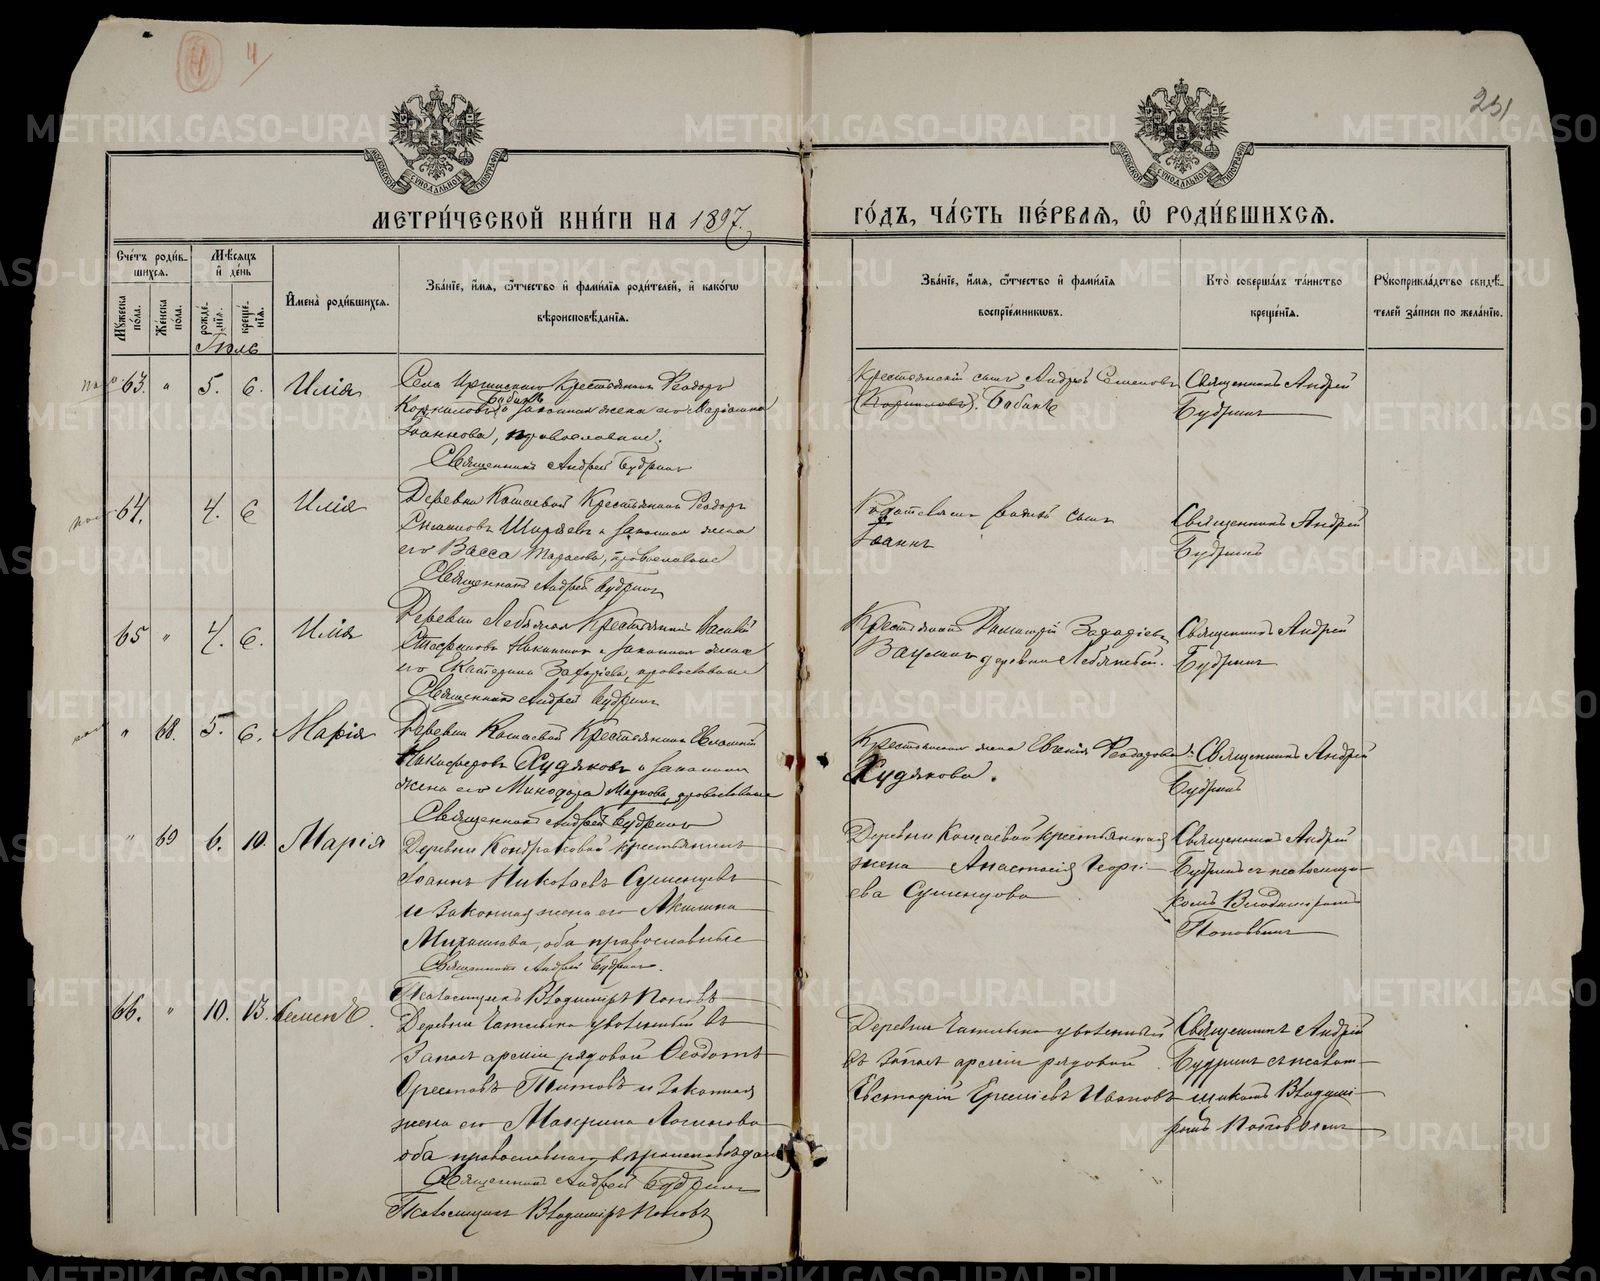 4/
231
МОСКОВСКОЙ СѴНОДАЛЬНОЙ ТИПОГРАФІИ
МОСКОВСКОЙ СѴНОДАЛЬНОЙ ТИПОГРАФІИ
МЕТРИ́ЧЕСКОЙ КНИ́ГИ НА 1897.
ГО́ДЪ, ЧА́СТЬ ПЕ́РВАЯ, Ѿ РОДИ́ВШИХСЯ.
Сче́тъ роди́в-
шихся.
Мѣсяцъ
и де́нь
Му́жеска по́ла.
Же́нска по́ла.
рожде́-
нія.
креще́-
нія.
Имена̀ роди́вшихся.
Зва́ніе, и́мя, ѻ́тчество и фами́лія роди́телей, и како́гѡ
вѣроисповѣ́данія.
Зва́ніе, и́мя, ѻ́тчество и фами́лія
воспріе́мниковъ.
Кто̀ соверша́лъ та́инство
креще́нія.
Рукоприкла́дство свидѣ́-
телей за́писи по жела́нію.
Іюль
63. " 5. 6. Илія
Села Иргинскаго Крестьянинъ Ѳеодоръ
Бабинъ
Корниловъ и законная жена его Маріамна
Іоаннова, православные.
Священникъ Андрей Будринъ
Крестьянскій сынъ Андрей Семеновъ
(Корниловъ). Бабинъ
Священникъ Андрей
Будринъ
64. 4. 6 Илія
Деревни Кошаевой Крестьянинъ Ѳеодоръ
Ширяевъ и законная жена
его Васса Тарасова, православные
Священникъ Андрей Будринъ
родной сынъ
Іоаннъ
Священникъ Андрей
Будринъ
65 " 4. 6. Илія
Деревни Лебяжья Крестьянинъ Василій
Стефановъ и законная жена
его Екатерина Захаріева, православные
Священникъ Андрей Будринъ
Крестьянинъ Димитрій Захаріевъ
деревни Лебяжьей.
Священникъ Андрей
Будринъ
" 68. 5. 6. Марія
Деревни Кошаевой Крестьянинъ
Никифоровъ Худяковъ и законная
жена его Минодора Маркова, православные
Священникъ Андрей Будринъ
Крестьянская жена Евгенія Ѳеодорова
Худякова.
Священникъ Андрей
Будринъ
" 69 6. 10. Марія
Деревни Кондраковой крестьянинъ
Іоаннъ Николаевъ Суменцевъ
и законная жена его Акилина
Михаилова, оба православные
Священникъ Андрей Будринъ.
Псаломщикъ Владиміръ Поповъ
Деревни Кошаевой крестьянская
жена Анастасія Георгі-
ева Суменцова
Священникъ Андрей
Будринъ съ псаломщи-
комъ Владиміромъ
Поповымъ
66. " 10. 13. Семенъ.
Деревни Чатлыка уволенный въ
запасъ арміи рядовой Ѳеодотъ
Орестовъ Титовъ и законная
жена его Макрина Логинова
оба православнаго вѣроисповѣдан.
Священникъ Андрей Будринъ
Псаломщикъ Владиміръ Поповъ
Деревни Чатлыка уволенный
въ запасъ арміи рядовой
Евстафій Ермиевъ Ивановъ
Священникъ Андрей
Будринъ съ псалом-
щикомъ Владимі-
ромъ Поповымъ
METRIKI.GASO-URAL.RU